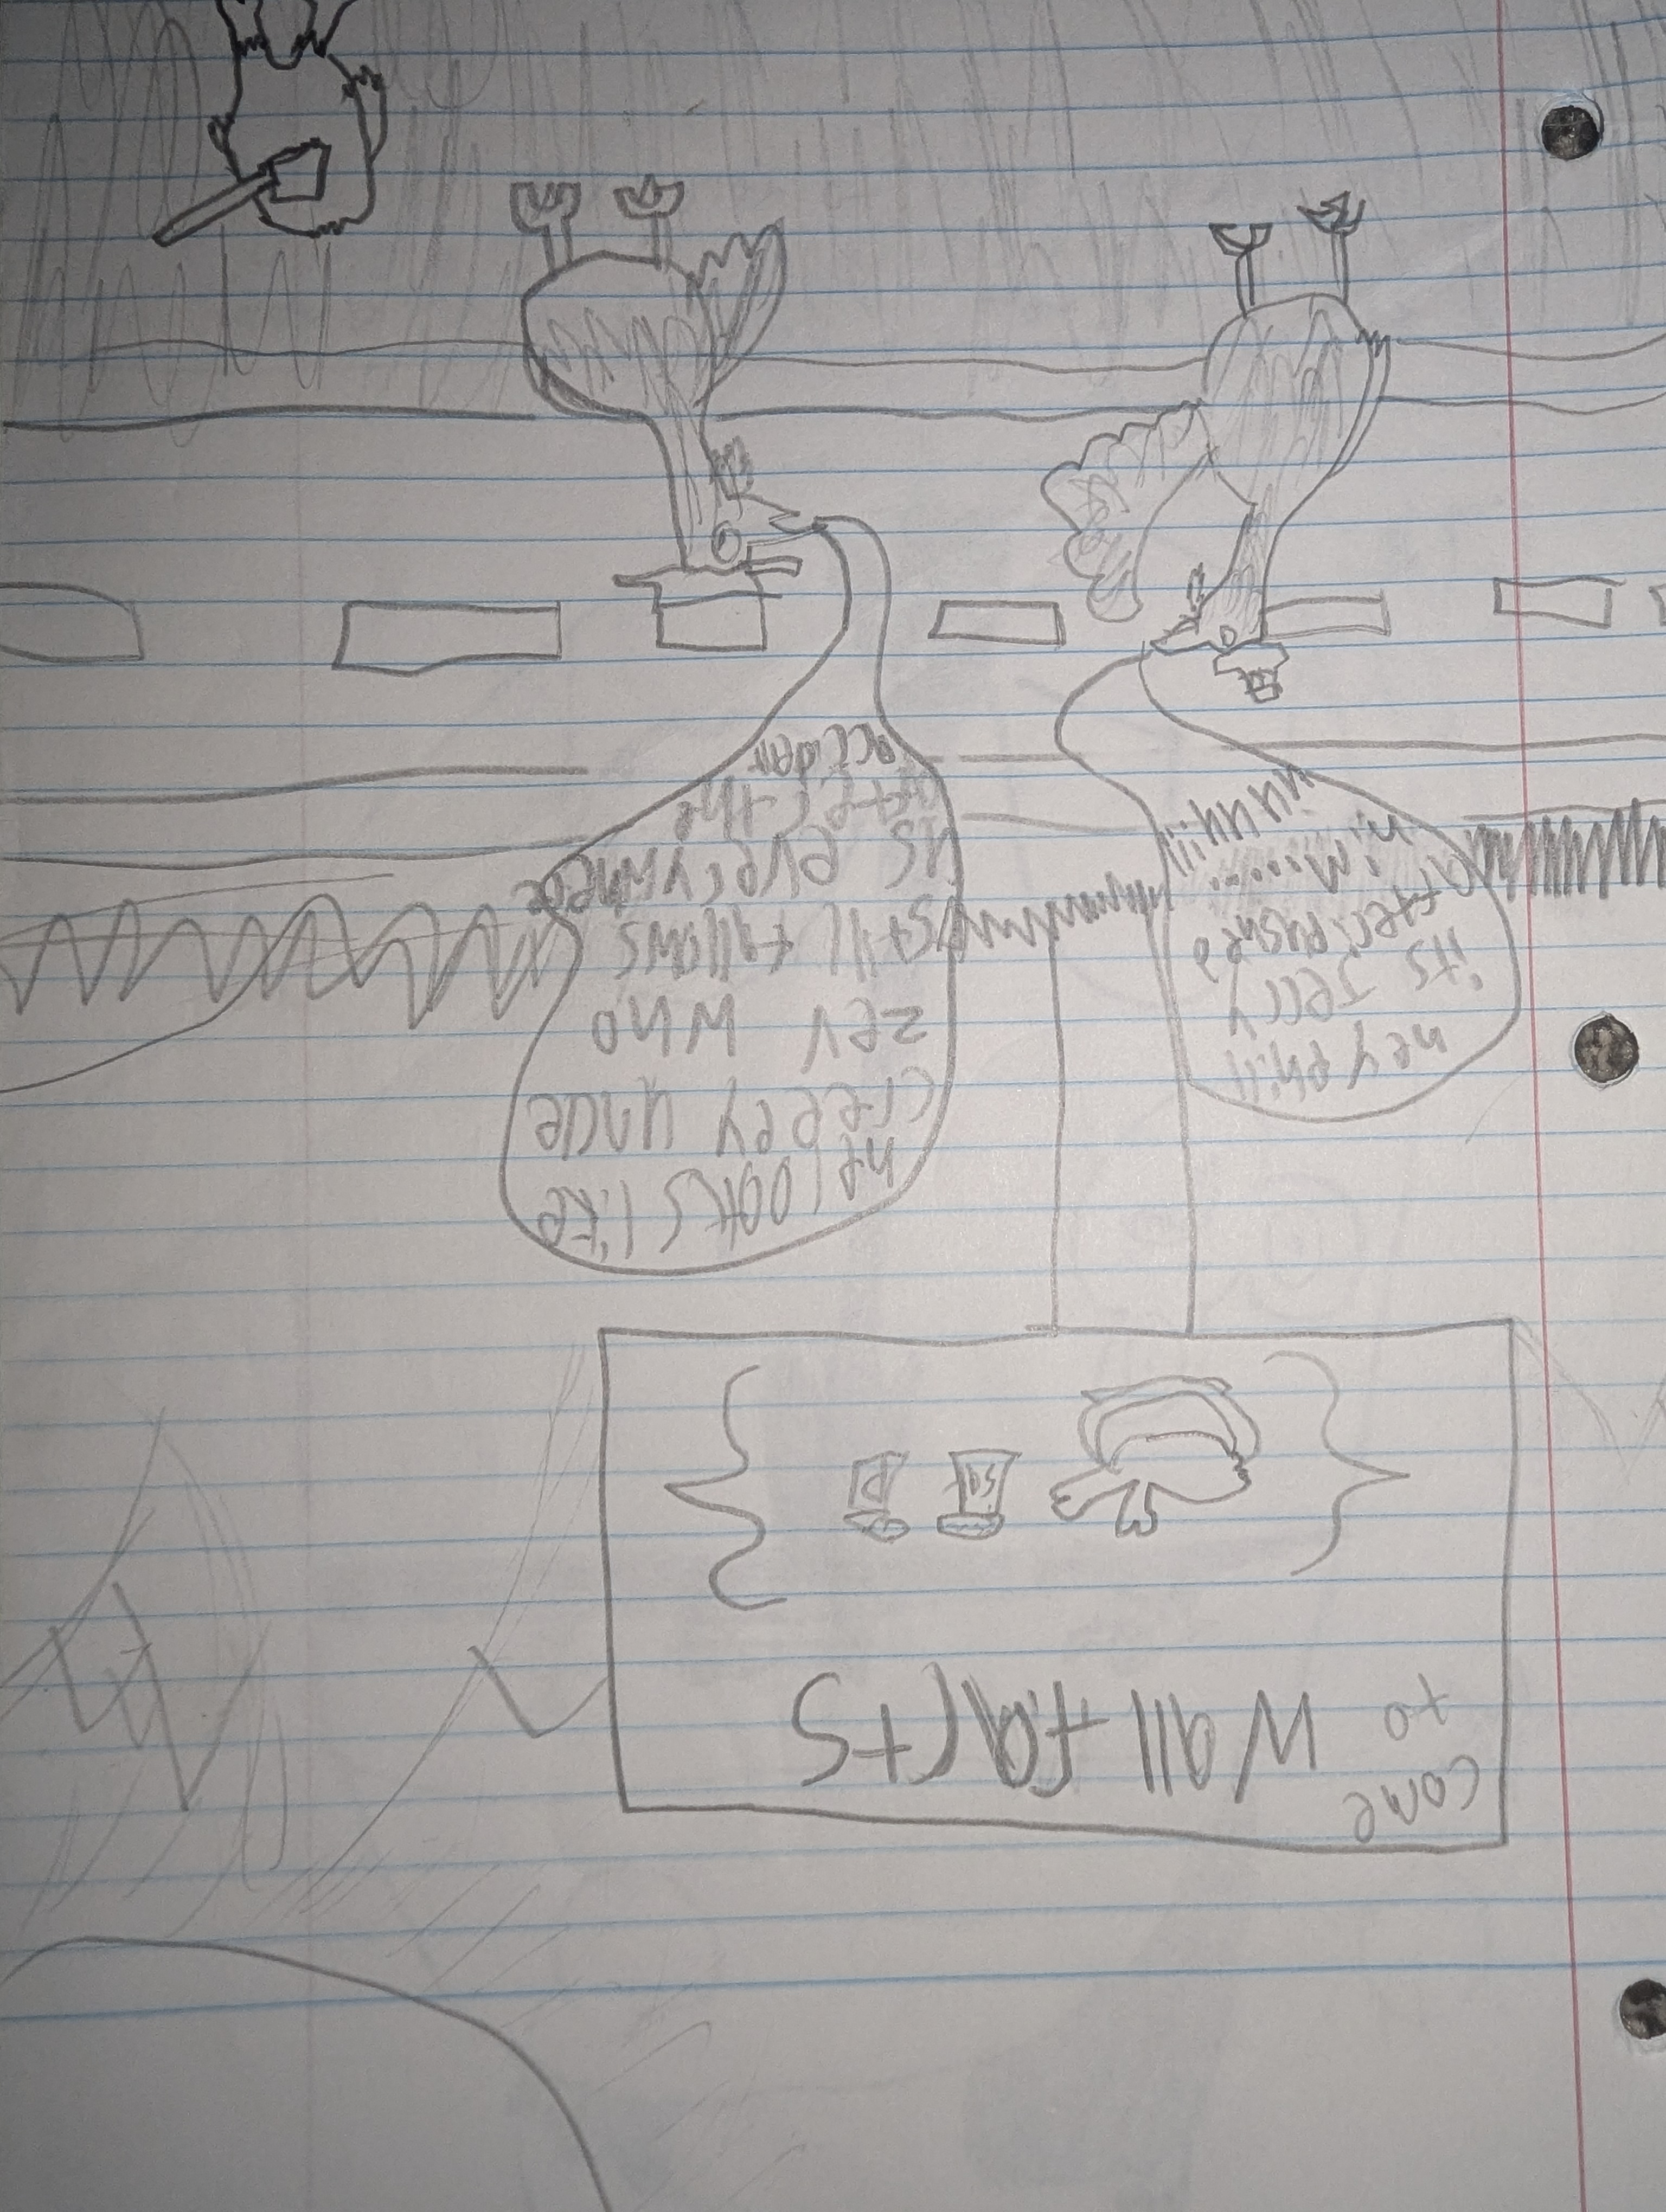 come
to Wall farts
Salt P
hey phill
its Jerry
after i pushed
him......
uuuu!!!
he looks like
creepy uncle
zev who
still follows
us everywhere
after the
accident